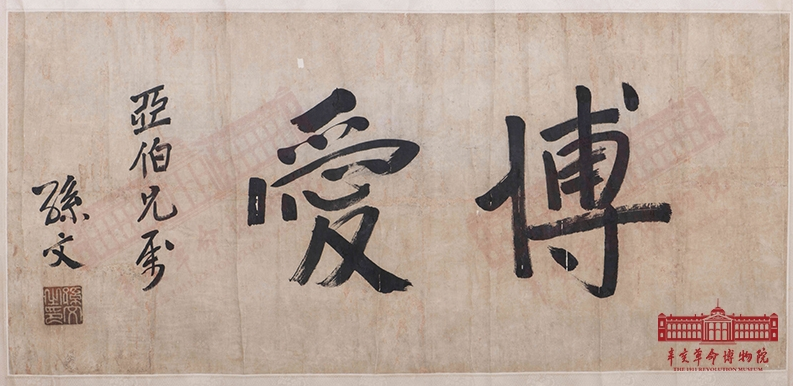 博愛
亞伯兄屬
孫文
孫文之印
辛亥革命博物院
THE 1911 REVOLUTION MUSEUM